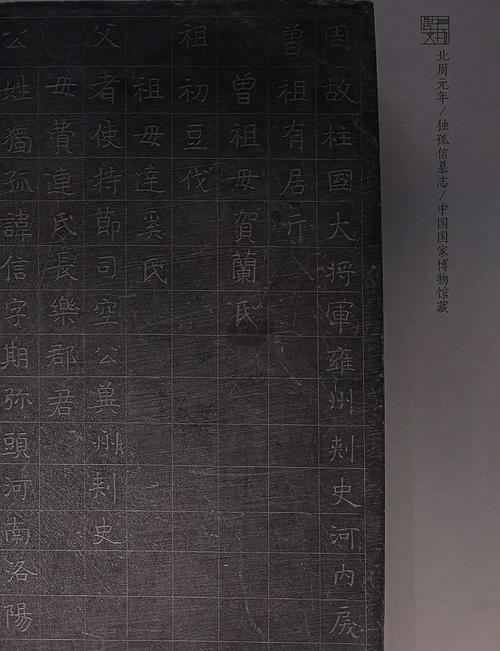 北周元年/独孤信墓志/中国国家博物馆藏
周故柱國大将軍雍州刾史河内房
曾祖有居斤
曾祖母賀蘭氏
祖初豆伐
祖母達奚氏
父者使持節司空公冀州刾史
母費連氏長樂郡君
公姓獨孤諱信字期弥頭河南洛陽